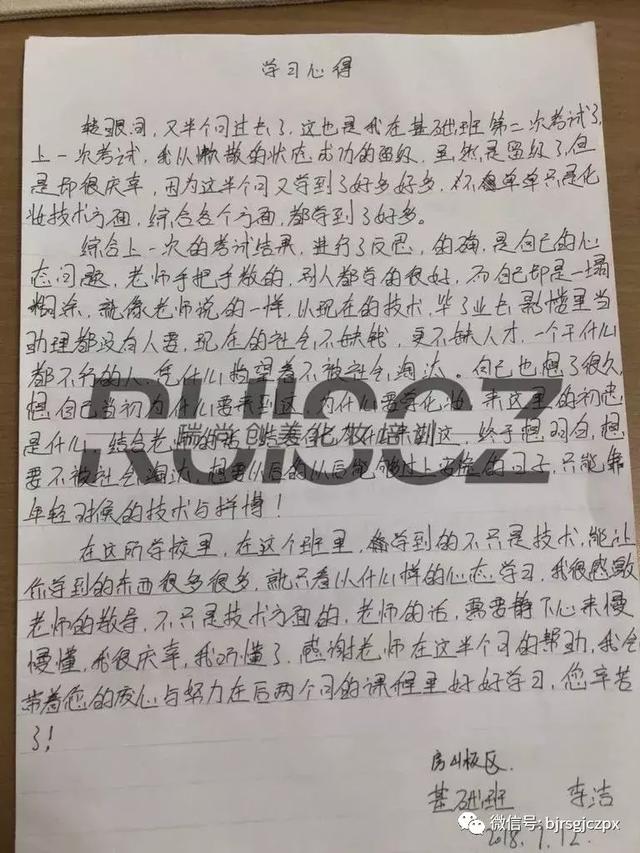 学习心得
转眼间,又半个月过去了,这也是我在基础班第二次考试了,
上一次考试,我从懒散的状态,成功的留级,虽然是留级了,但
是却很庆幸,因为这半个月又学到了好多好多,不单单只是化
妆技术方面,综合各个方面,都学到了好多。
综合上一次的考试结果,进行了反思,的确,是自己的心
态问题,老师手把手教的,别人都学的很好,而自己却是一塌
糊涂,就像老师说的一样,以现在的技术,毕了业去影楼里当
助理都没有人要,现在的社会不缺钱,更不缺人才,一个干什么
都不行的人,凭什么指望着不被社会淘汰。自己也想了很久,
想自己当初为什么要来到这,为什么要学化妆,来这里的初衷
是什么,结合老师的话,这,终于想明白,想
要不被社会淘汰,想要以后的以后能够过上安稳的日子,只能靠
年轻时候的技术与拼搏!
在这所学校里,在这个班里,学到的不只是技术,能让
你学到的东西很多很多,就只看以什么样的心态学习,我很感激
老师的教导,不只是技术方面的,老师的话,需要静下心来慢
慢懂,我很庆幸,我听懂了,感谢老师在这半个月的帮助,我会
带着您的爱心与努力在后两个月的课程里好好学习,您辛苦
了!
房山校区.
基础班 李洁
2018.1.12.
RUISCZ
瑞尚创美化妆培训
微信号: bjrsgjczpx